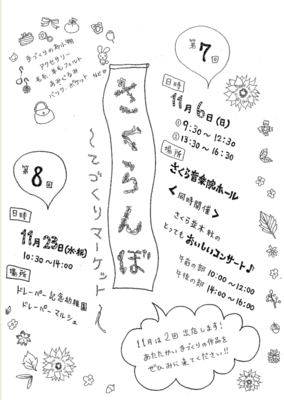 手づくりの布小物
アクセサリー
毛糸、羊毛フェルト
あみぐるみ
バッグ、ポケット などなど
さくらんぼ
～てづくりマーケット～
第7回
日時
11月6日(日)
①9:30～12:30
②13:30～16:30
場所
さくら音楽院ホール
〈同時開催〉
さくら並木秋の
とってもおいしいコンサート♪
午前の部 10:00～12:00
午後の部 14:00～16:00
第8回
日時
11月23日(水・祝)
10:30～14:00
場所
ドレーパー記念幼稚園
ドレーパーマルシェ
11月は2回出店します!
あたたかい手づくりの作品を
ぜひみに来てください!!